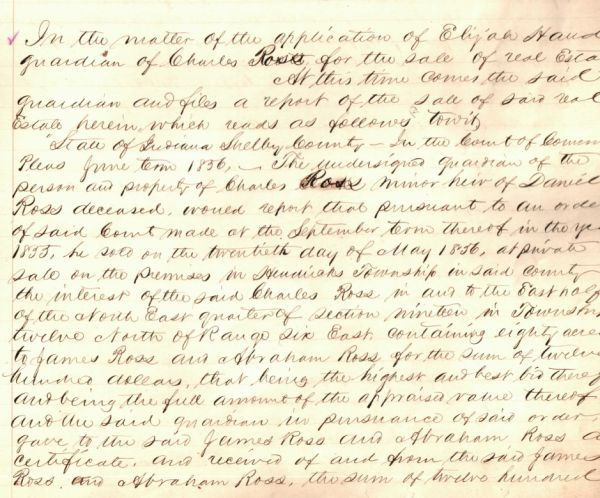 In the matter of the application of Elijah Hand
guardian of Charles Ross for the sale of real Esta
At this time comes the said
guardian and files a report of the sale of said real
Estate herein which reads as follows towit
State of Indiana Shelby County - In the Court of Common
Pleas June term 1856, - The undersigned guardian of the
person and property of Charles Ross minor heir of Daniel
Ross deceased, would report that pursuant to an orde
of said Court made at the September term thereof in the ye
1855, he sold on the twentieth day of May 1856, at private
sale on the premises in Hendricks Township in said county
the interest of the said Charles Ross in and to the East half
of the North East quarter of section nineteen in Townsh
twelve North of Range six East, containing eighty acres
to James Ross and Abraham Ross for the sum of twelve
hundred dollars, that being the highest and best bid thereof
and being the full amount of the appraised value thereof
and the said guardian in pursuance of said order
gave to the said James Ross and Abraham Ross a
certificate, and received of and from the said James
Ross and Abraham Ross, the sum of twelve hundred